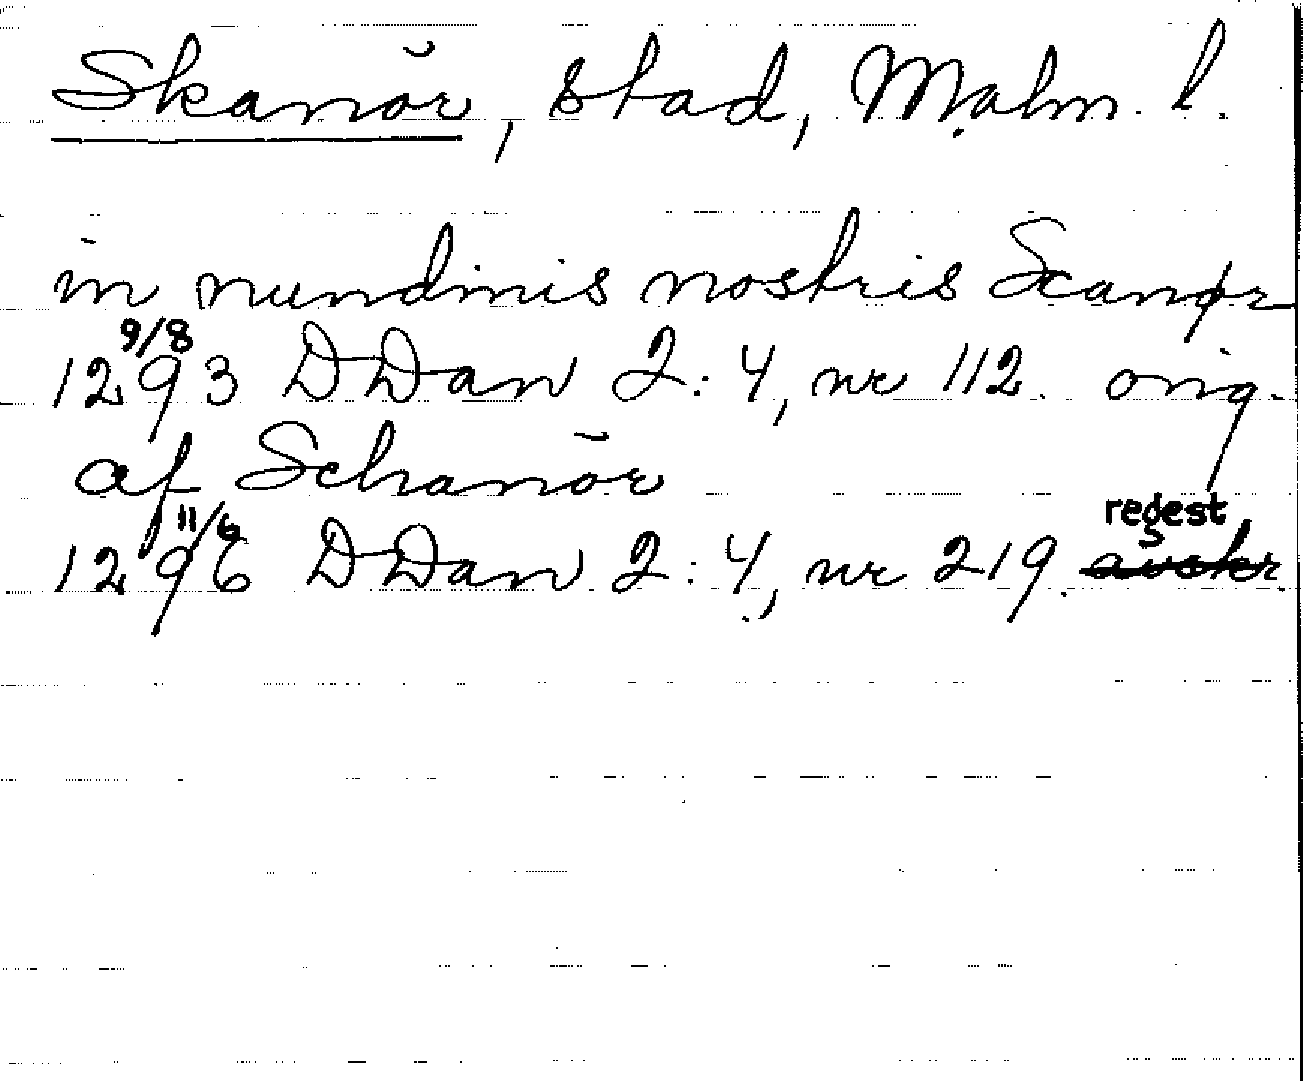 Skanör, stad, Malm. l.
in nundinis nostris Scanør
9/8
1293 DDan 2:4, nr 112. orig.
af Schanör
11/6 regest
1296 DDan 2:4, nr 219. avskr.